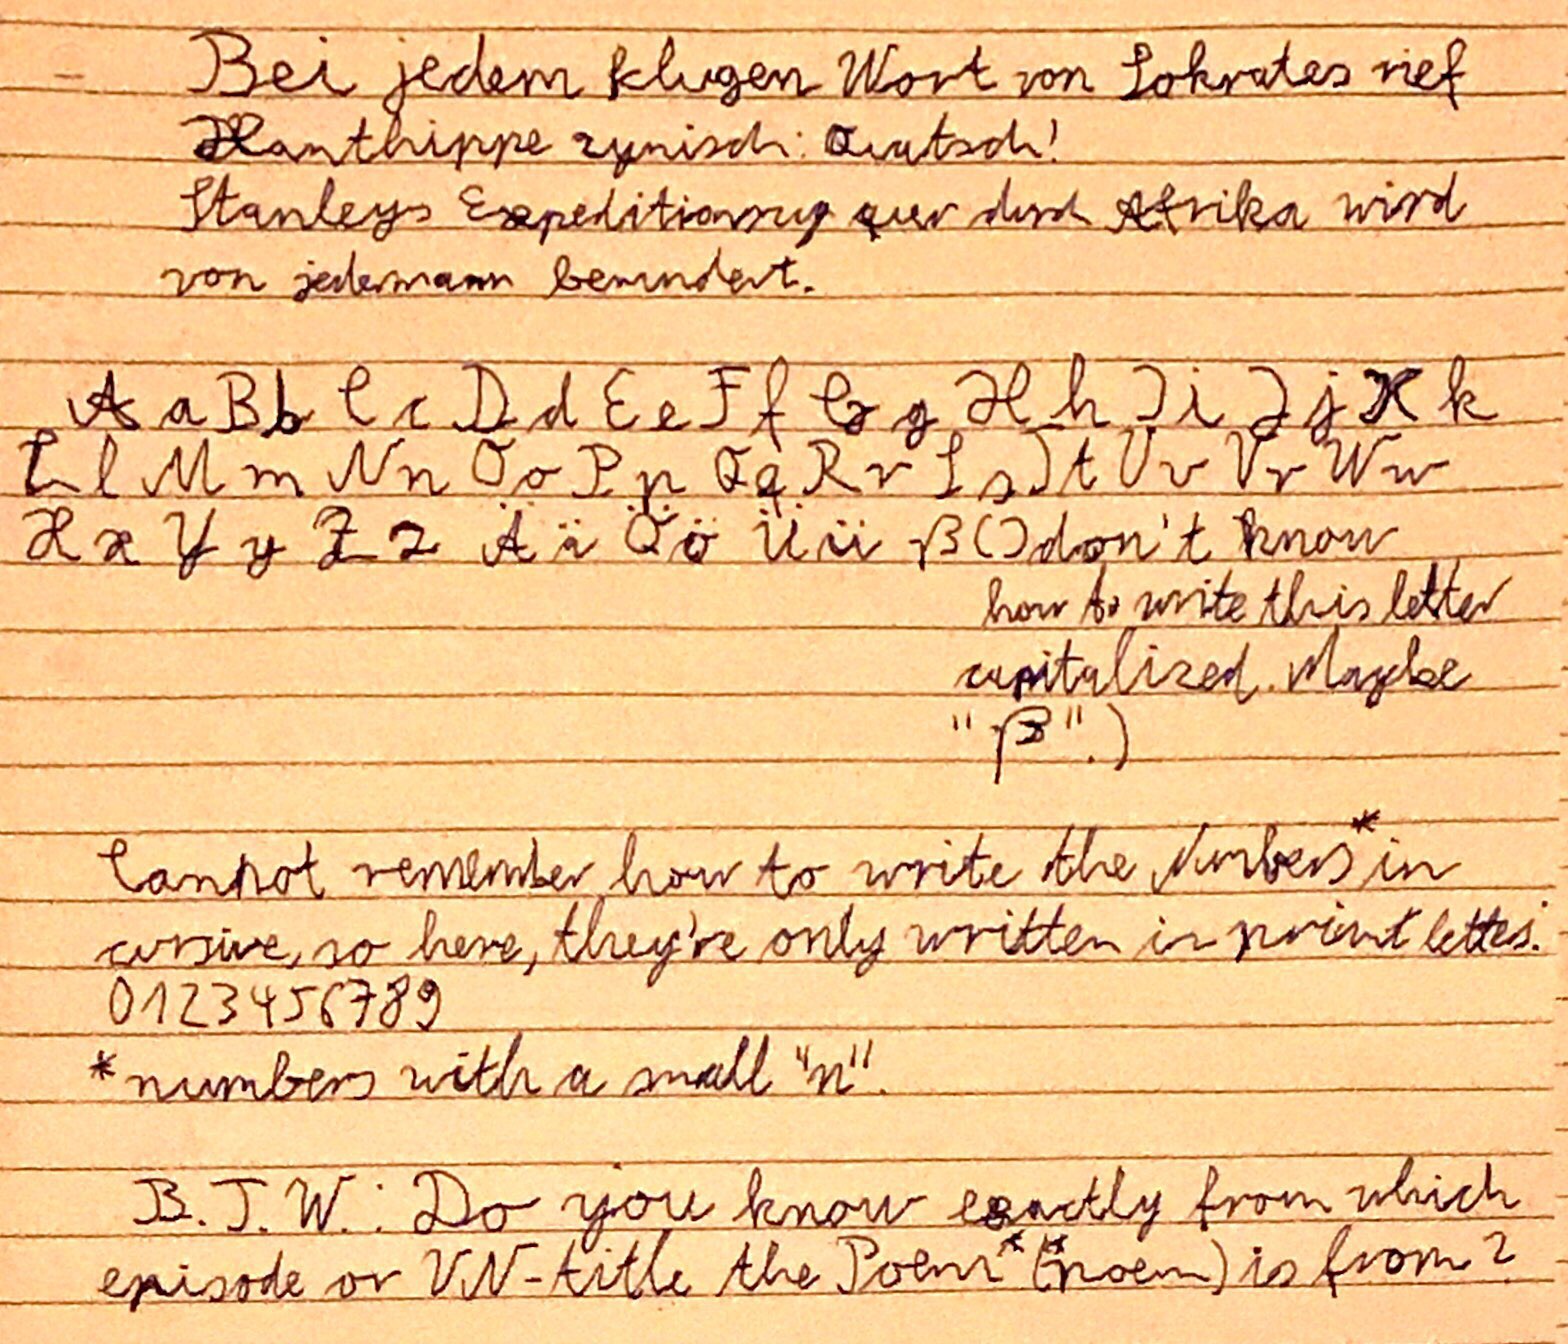 - Bei jedem klugen Wort von Sokrates rief
Xanthippe zynisch: Quatsch!
Stanleys Expeditionszug quer durch Afrika wird
von jedermann bewundert.
A a B b C c D d E e F f G g H h I i J j K k
L l M m N n O o P p Q q R r S s T t U u V v W w
X x Y y Z z Ä ä Ö ö Ü ü ß (I don't know
how to write this letter
capitalized. Maybe
"ß".)
Cannot remember how to write the Numbers* in
cursive, so here, they're only written in print letters.
0123456789
*numbers with a small "n".
B.T.W.: Do you know exactly from which
episode or VN-title the Poem* (*poem) is from?